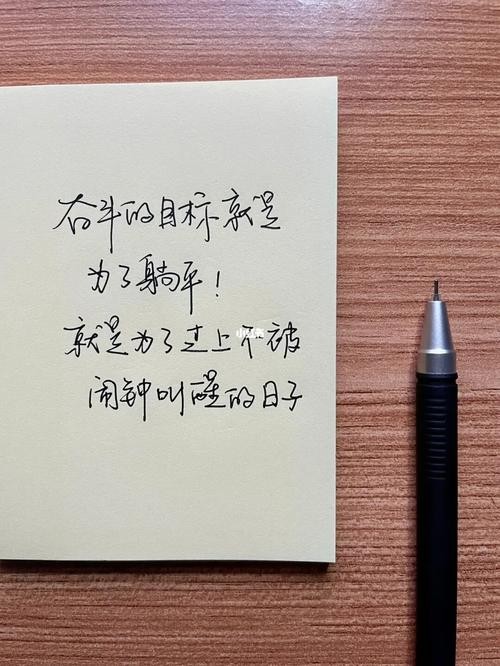 奋斗的目标就是
为了躺平！
就是为了过上不被
闹钟叫醒的日子
小红书